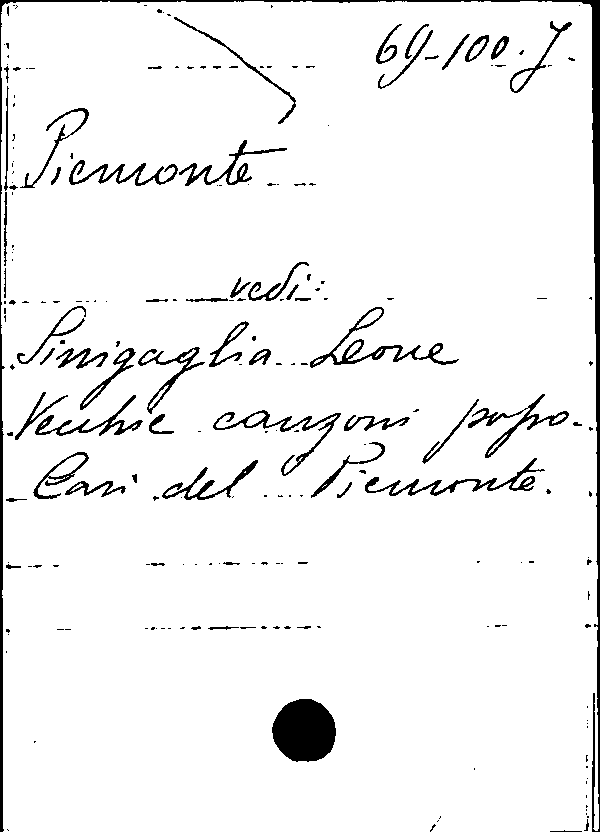 69-100.J.
Piemonte
vedi:
Sinigaglia Leone
Vecchie canzoni popo-
lari del Piemonte.